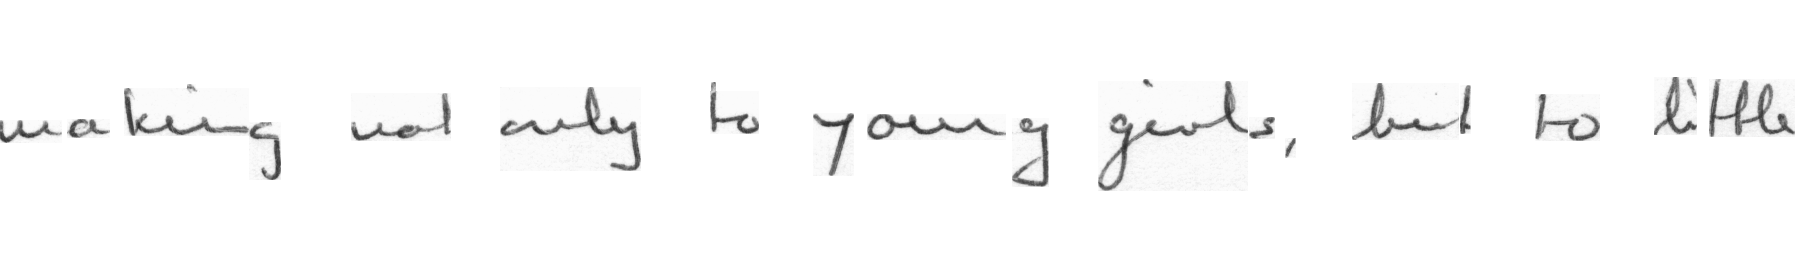 making not only to young girls, but to little